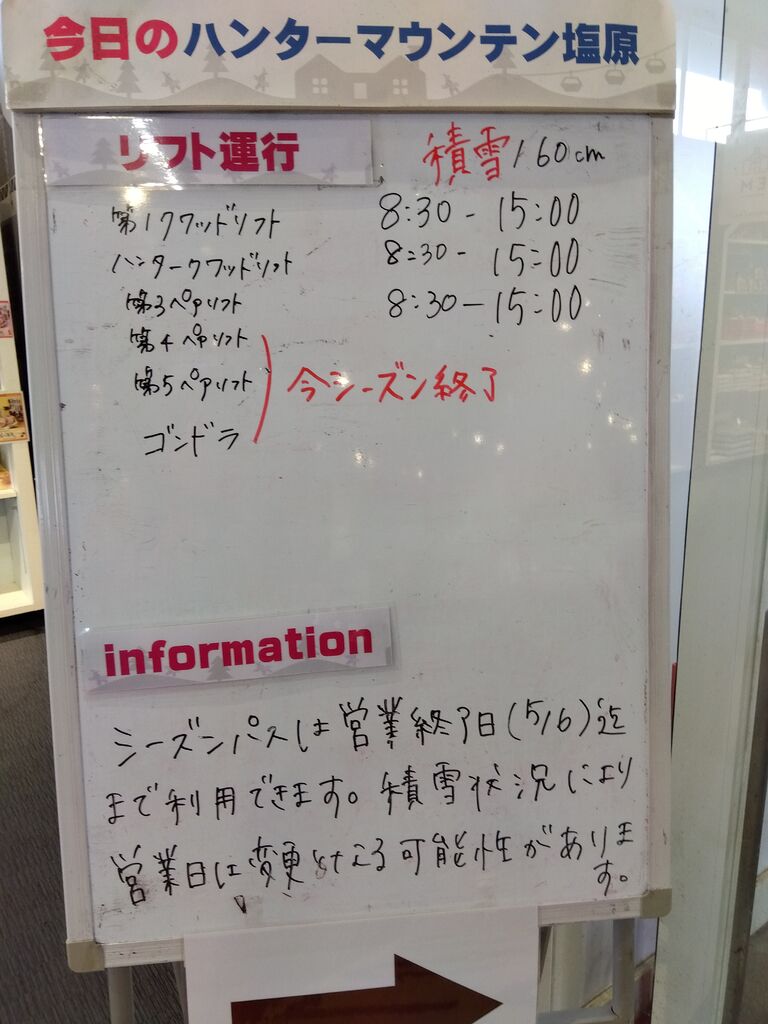 今日のハンターマウンテン塩原
リフト運行
積雪160cm
第1クワッドリフト 8:30 - 15:00
ハンタークワッドリフト 8:30 - 15:00
第3ペアリフト 8:30 - 15:00
第4ペアリフト
第5ペアリフト
今シーズン終了
ゴンドラ
information
シーズンパスは営業終了日(5/6)迄
まで利用できます。積雪状況により
営業日に変更となる可能性がありま
す。